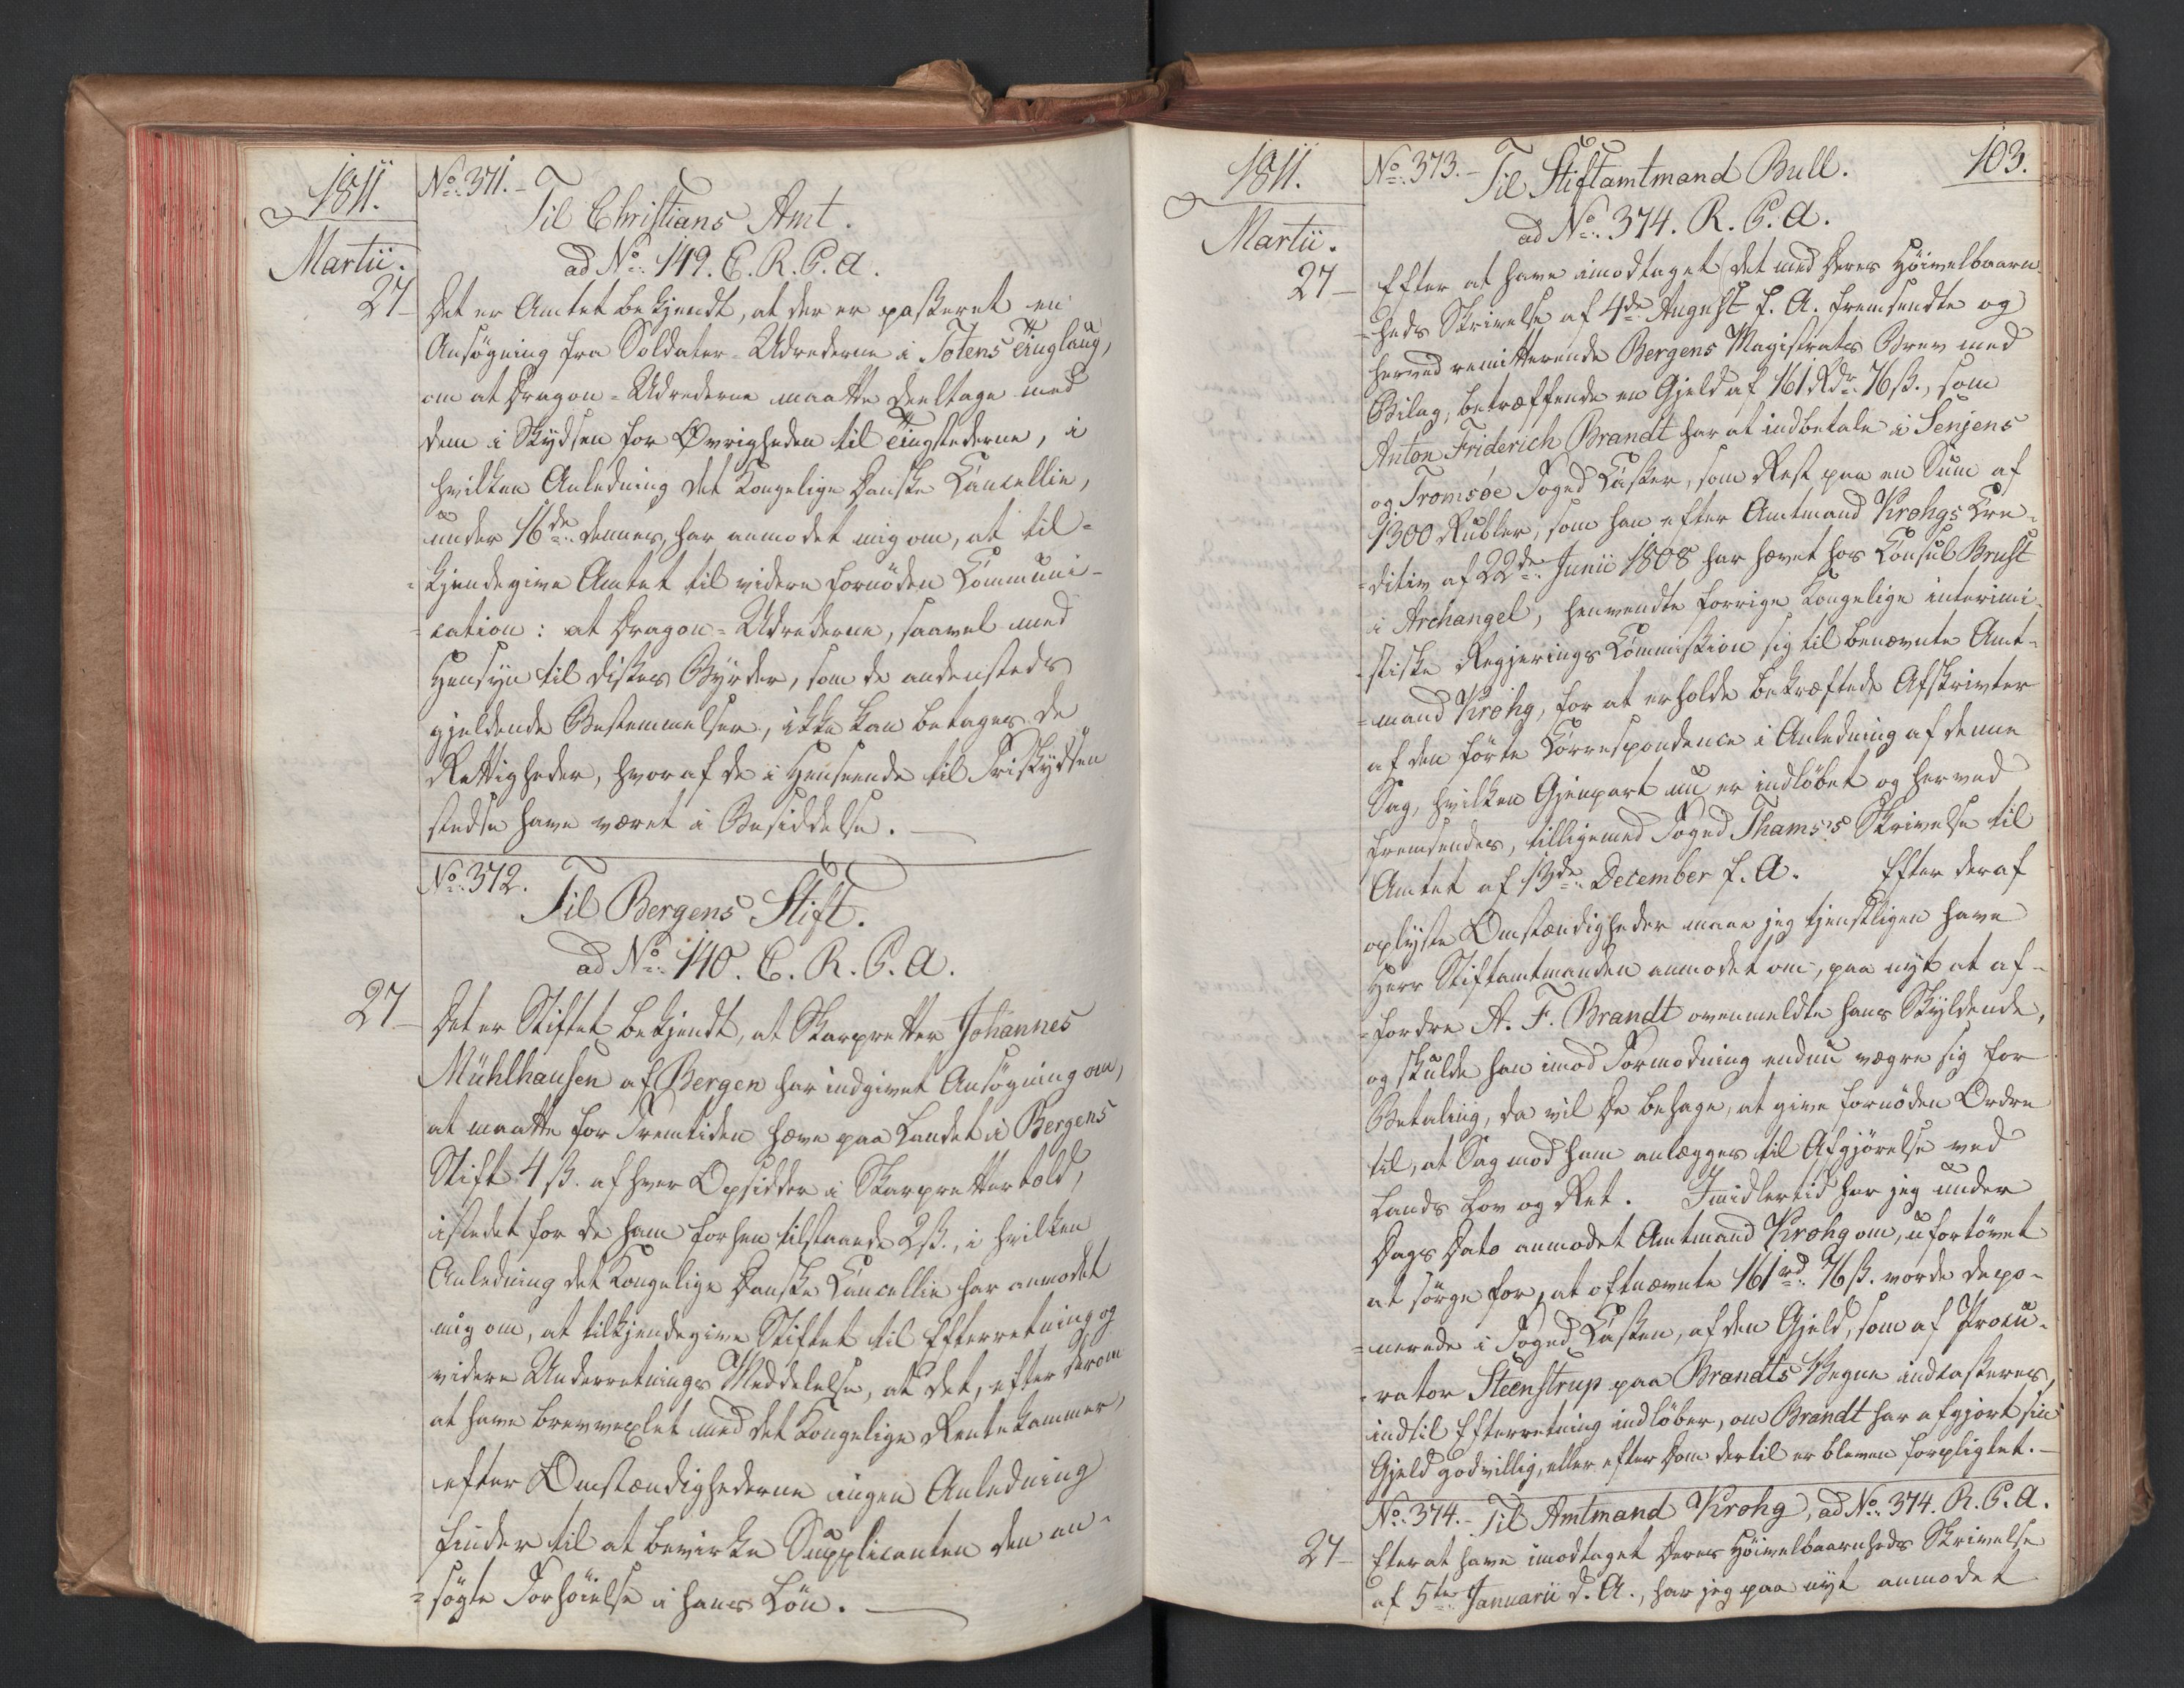 1811.
No. 371.-
Til Christians Amt.
Martii.
ad No. 149. C. R. P. A.
27-
Det er Amtet bekjendt, at der er passeret en
Ansøgning fra Soldater-Udrederne i Totens Tinglaug,
om at Dragon-Udrederne maatte deeltage med
dem i Skydsen for Øvrigheden til Tingstederne, i
hvilken Anledning det Kongelige Danske Cancellie,
under 16de dennes, har anmodet mig om, at til-
-kjendegive Amtet til videre fornöden Communi-
-cation: at Dragon-Udrederne, saavel med
Hensyn til disses Byrder, som de andensteds
gjeldende Bestemmelser, ikke kan betages de
Rettigheder, hvoraf de i Henseende til Friskydsen
stedse have været i Besiddelse.
No. 372.
Til Bergens Stift.
ad No. 140. C. R. P. A.
27-
Det er Stiftet bekjendt, at Skarpretter Johannes
Mühlhausen af Bergen har indgivet Ansøgning om,
at maatte for Fremtiden hæve paa Landet i Bergens
Stift 4 ß. af hver Opsidder i Skarprettertold,
istedet for de ham forhen tilstaaede 2 ß., i hvilken
Anledning det Kongelige Danske Cancellie har anmodet
mig om, at tilkjendegive Stiftet til Efterretning og
videre Underretnings Meddelelse, at det, efter derom
at have brevvexlet med det Kongelige Rentekammer,
efter Omstændighederne ingen Anledning
finder til at bevirke Supplicanten den an-
-søgte Forhöielse i hans Lön.
1811.
No. 373.-
Til Stiftamtmand Bull.
103.
Martii.
ad No. 374. R. P. A.
27-
Efter at have imodtaget det med Deres Höivelbaarn-
-heds Skrivelse af 4de August f. A. fremsendte og
herved remitterende Bergens Magistrats Brev med
Bilag, betræffende en Gjeld af 161 Rdr. 76 ß., som
Anton Friderich Brandt har at indbetale i Senjens
og Tromsöe Foged Casse, som Rest paa en Sum af
1300 Rubler, som han efter Amtmand Krohgs Cre-
-ditiv af 22de Junii 1808 har hævet hos Consul Brust
i Archangel, henvendte forrige Kongelige interimi-
-stiske Regjerings Commission sig til benævnte Amt-
-mand Krohg, for at erholde bekræftede Afskrivter
af den förte Correspondence i Anledning af denne
Sag, hvilken Gjenpart nu er indlöbet og herved
fremsendes, tilligemed Foged Thams's Skrivelse til
Amtet af 13de December f. A. Efter deraf
oplyste Omstændigheder maae jeg tjenstligen have
Herr Stiftamtmanden anmodet om, paa nyt at af-
-fordre A. F. Brandt ovenmeldte hans Skyldende,
og skulde han imod Formodning endnu vægre sig for
Betaling, da vil De behage, at give fornöden Ordre
til, at Sag mod ham anlægges til Afgjörelse ved
Lands Lov og Ret. Imidlertid har jeg under
Dags Dato anmodet Amtmand Krohg om, ufortövet
at sörge for, at oftnævnte 161 rd. 76 ß. vorde depo-
-nerede i Foged Cassen, af den Gjeld, som af Procu-
-rator Steenstrup paa Brandts Vegne indkasseres,
indtil Efterretning indlöber, om Brandt har afgjort sin
Gjeld godvillig, eller efter Dom dertil er bleven forpligtet.-
No. 374.- Til Amtmand Krohg, ad No. 374. R. P. A.
27-
Efter at have imodtaget Deres Höivelbaarnheds Skrivelse
af 5te Januarii d. A., har jeg paa nyt anmodet